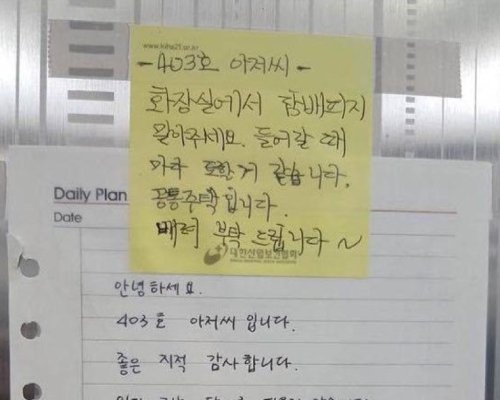 www.kiha21.or.kr
-403호 아저씨-
화장실에서 담배피지
말아주세요. 들어갈 때
마다 토할거 같습니다.
공통주택입니다.
배려 부탁 드립니다~
대한산업보건협회
Daily Plan
Date
안녕하세요.
403호 아저씨입니다.
좋은 지적 감사합니다.